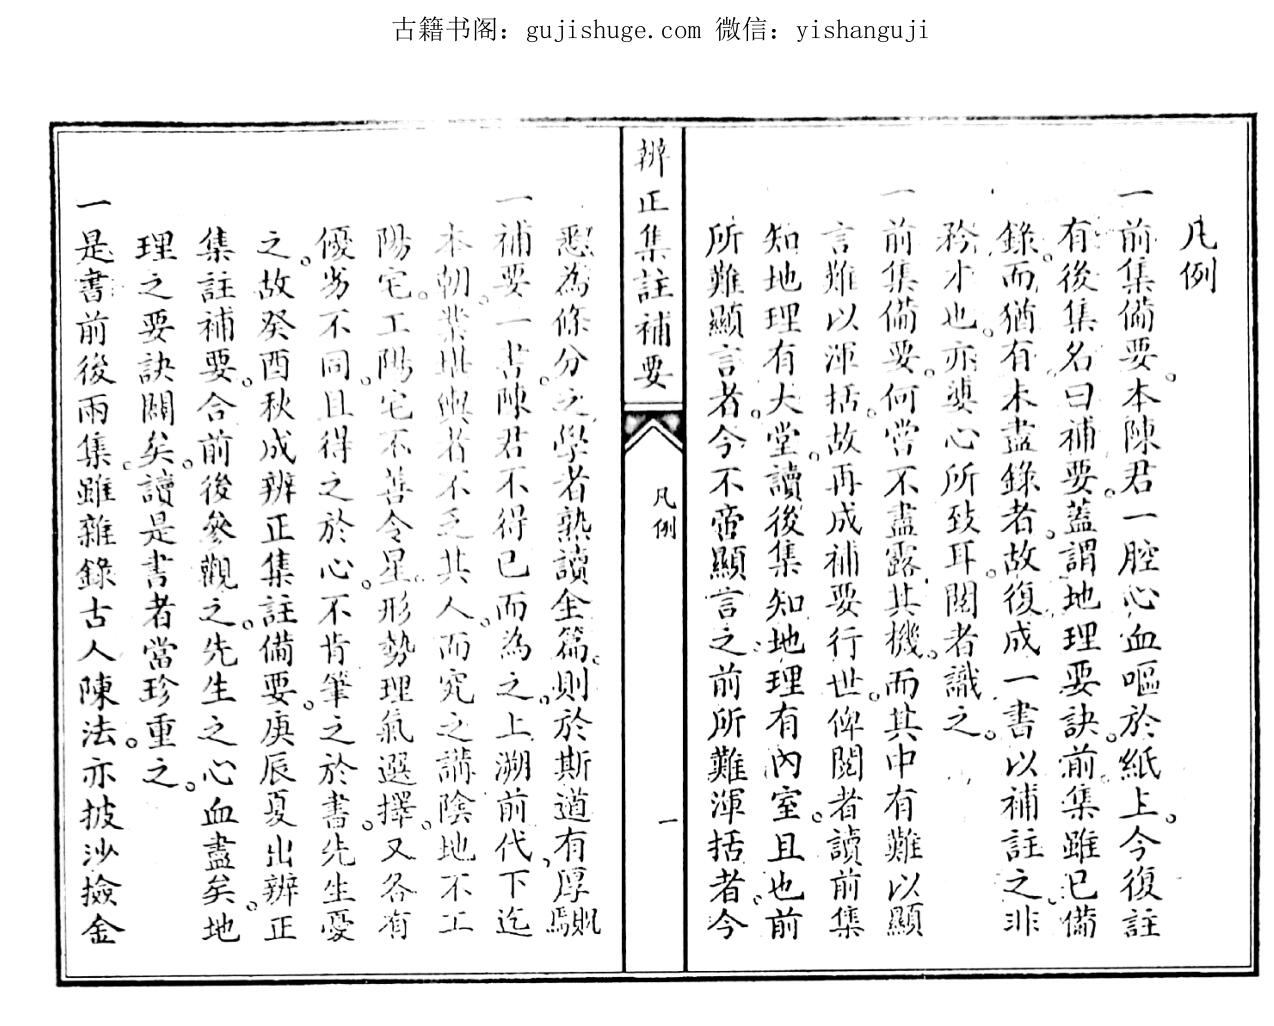 古籍书阁：gujishuge.com 微信：yishanguji
凡例
一前集備要。本陳君一腔心血嘔於紙上。今復註
有後集名曰補要。蓋謂地理要訣。前集雖已備
錄。而猶有未盡錄者。故復成一書以補註之。非
矜才也。亦婆心所致耳。閱者識之。
一前集備要。何嘗不盡露其機。而其中有難以顯
言難以渾括。故再成補要行世。俾閱者讀前集
知地理有大堂。讀後集知地理有內室。且也前
所難顯言者。今不啻顯言之。前所難渾括者。今
辨正集註補要
凡例
一
悉為條分之。學者熟讀全篇。則於斯道有厚
一補要一書。陳君不得已而為之。上溯前代。下迄
本朝。業堪輿者不乏其人。而究之講陰地不工
陽宅。工陽宅不善令星。形勢理氣選擇。又各有
優劣不同。且得之於心。不肯筆之於書。先生憂
之。故癸酉秋成辨正集註備要。庚辰夏出辨正
集註補要。合前後參觀之。先生之心血盡矣。地
理之要訣闢矣。讀是書者。當珍重之。
一是書前後兩集。雖雜錄古人陳法。亦披沙撿金